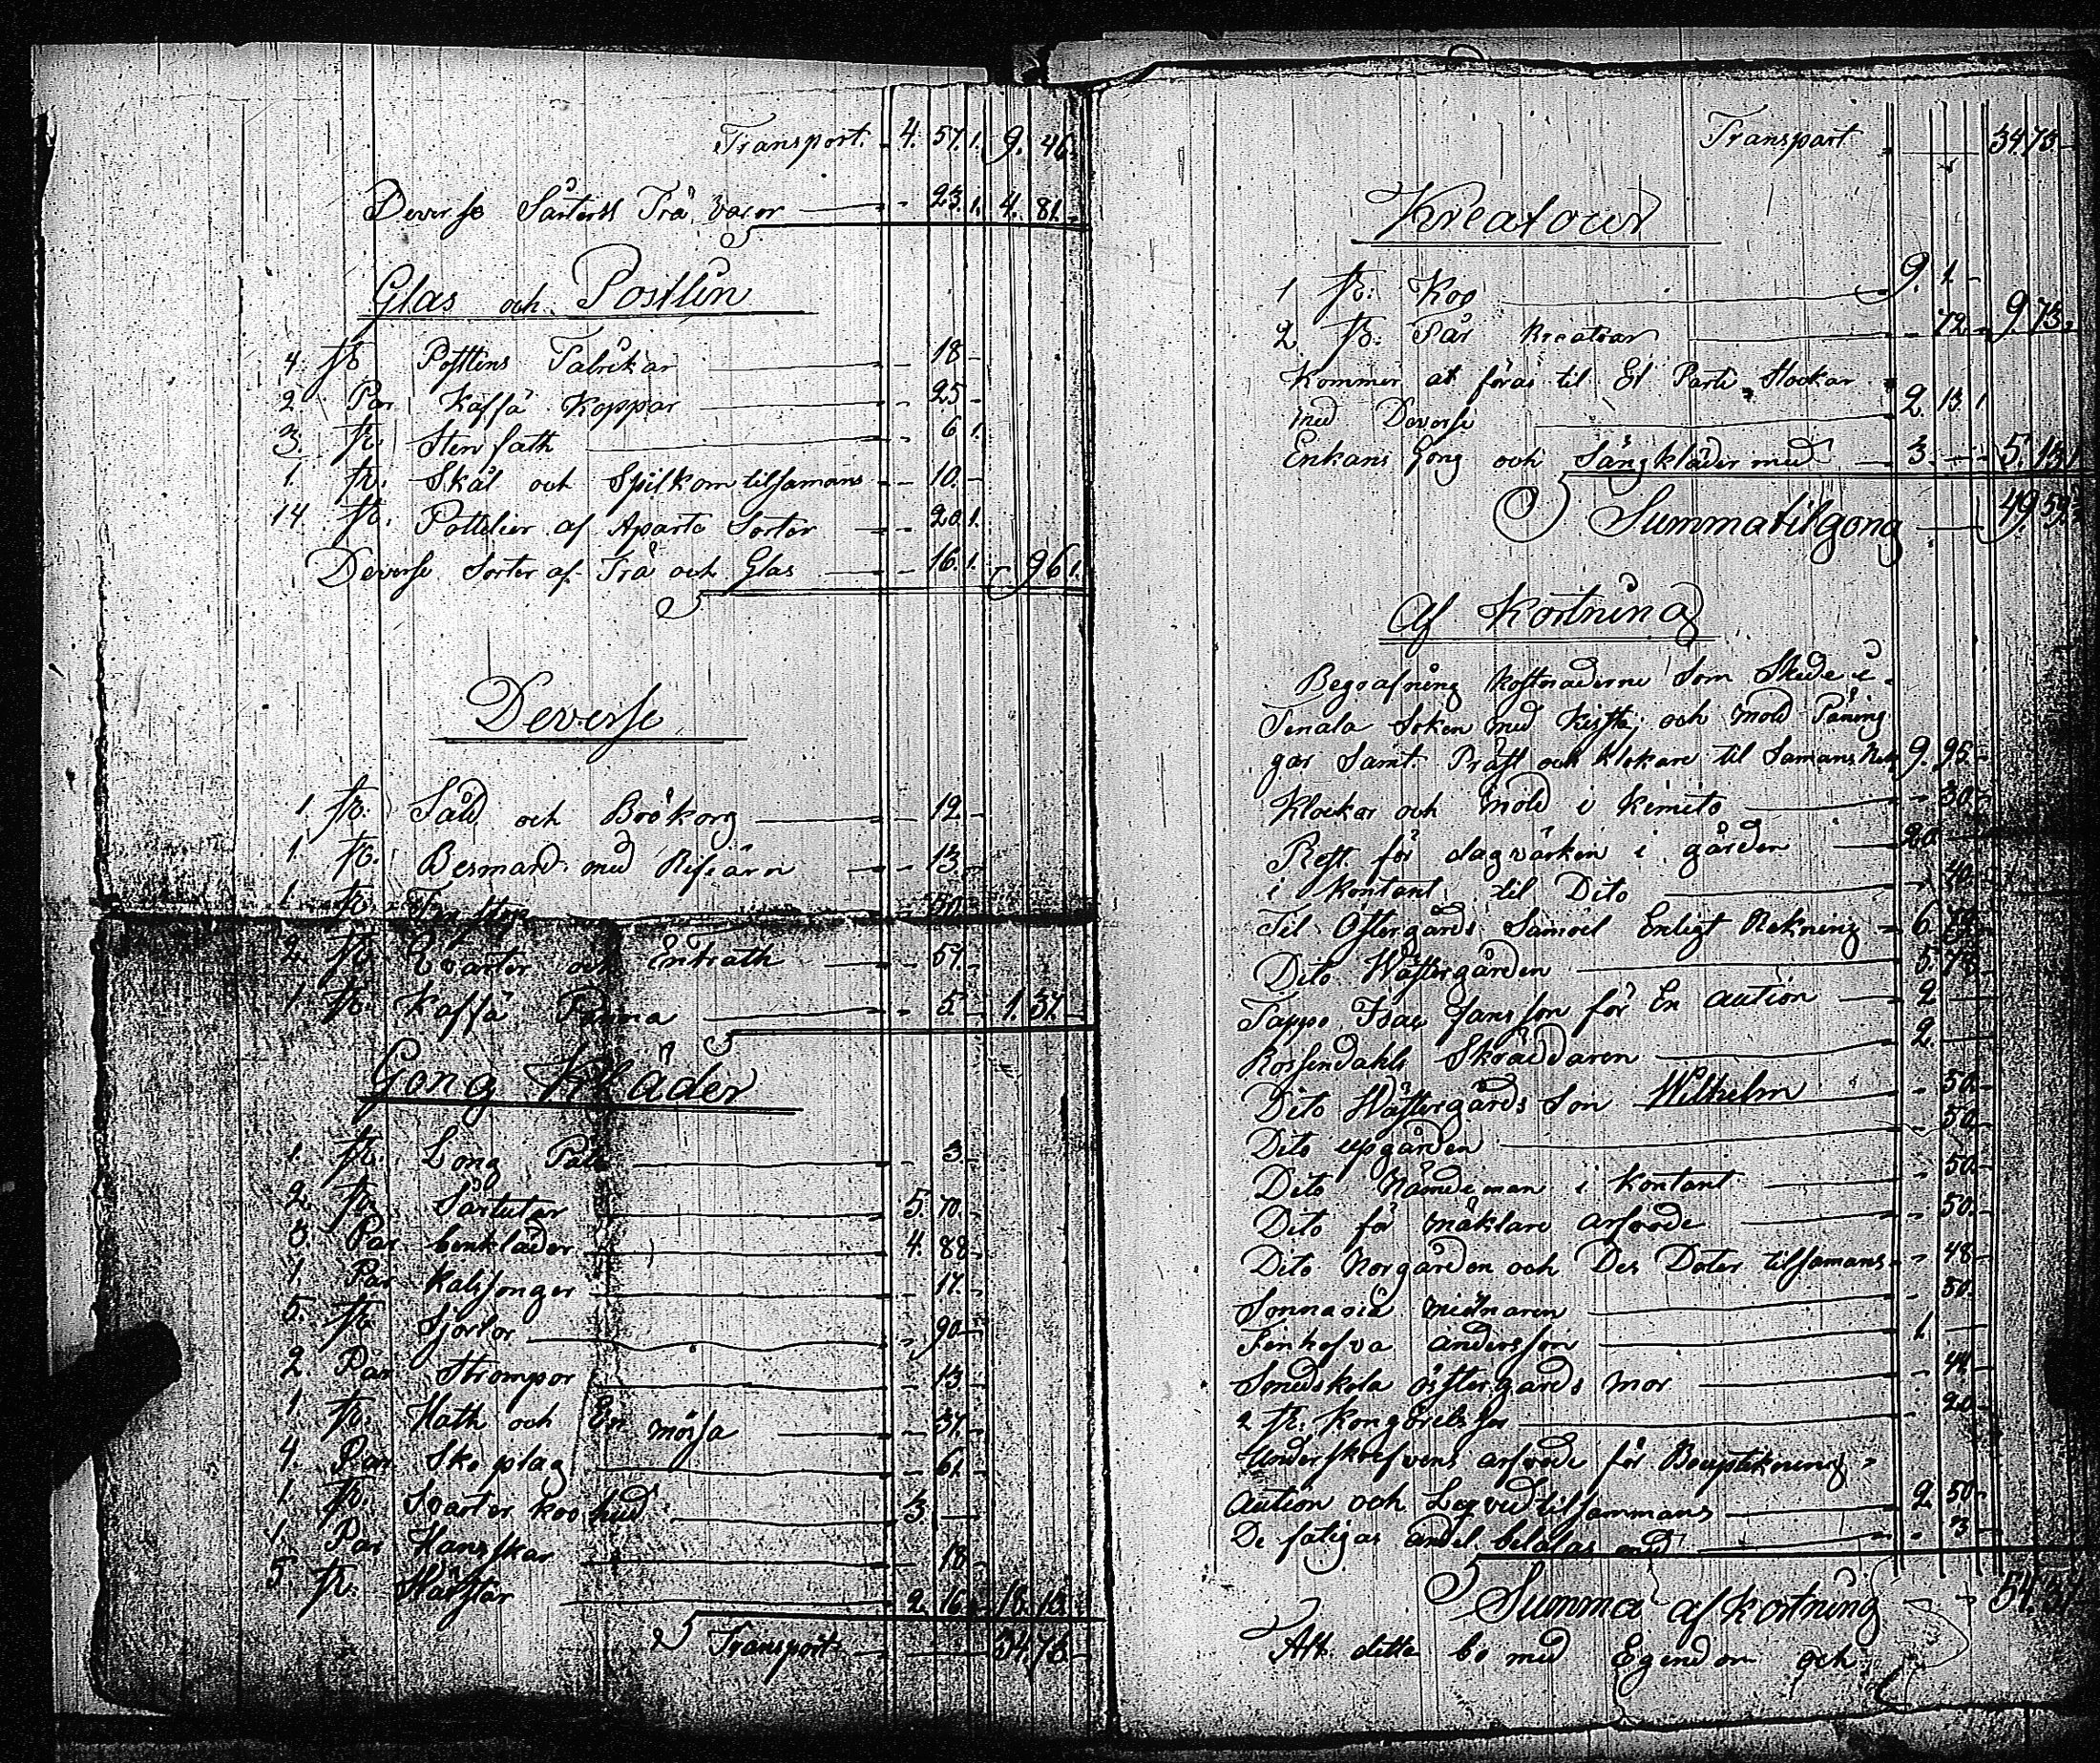 Transport. 4. 57. 1. 9. 46.
Deverse Sårters Trä varor - 23. 1. 4. 81. -
Glas och Postlin
4. st. Postlens Talrikar - 18 -
2 Par Kaffä Koppar - 25. -
3. st. Sten fath - 6 1.
1. st. Skål och Spilkom tilsamans - 10. -
14 st. Pottelier af Aparta Sorter - 20. 1.
Deverse Sorter af Trä och Glas - 16. 1. - 96 1.
Deverse
1. st. Såld och Brökorg - 12. -
1. st. Besmand med - 13. -
1. st.
2. st. och - 57. -
1. st. Kaffä Panna - 5. - 1. 37. -
Gong Kläder
1. st. Long Päls - 3 -
2 st. Sortutar 5. 70. -
3. Par benkläder 4. 88. -
1. Par Kalsonger - 17. -
5. st. Sjortor - 90. -
2. Par Strompor - 13. -
1 st. Hath och En mössa - 37. -
4. Par Sko plag - 61. -
1. st. Svarter koo hud 3 -
1. Par Hansskar - 18 -
5 st. Häfstar 2. 16. - 18. 13.
Transport - 34. 73. -
Transport - 34. 73 -
Kreatour
1 st: Koo 9. 1 -
2 st. Får Kreatur - 72. - 9. 73.
Kommer at föras til Et Parti Stockar
med Deverse 2. 13. 1
Enkans Gong och Sängkläder med 3. - - 5. 13. 1
Summa tilgong 49. 59.
Af Kortning
Begrafning Kostnaderne Som Skede i
Tenala Soken med kista, och mold Påning
gar Samt Präst och Klokare til Samans 9. 95. -
Klockar och mold i Kimito - 30. -
Rest för dagvärken i gården 20. -
i Kontant til Dito - 40. -
Til Östergårds Samoel Enligt Rekning 6.
Dito Wästergården 5. 73.
Tappo Isac Jansson för En Aution 2 -
Rossendahls Skräddaren 2. -
Dito Wästergårds Son Wilhelm - 50. -
Dito upgården - 50. -
Dito Nämdeman i Kontant - 50. -
Dito för mäklare arfvode - 50. -
Dito Norgården och Des Doter tilsamans - 48 -
- 50. -
Andersson 1. -
Smedskola östergårds mor - 44. -
2 st. - 20. -
Underskrefvens arfvode för Bouptekning
Aution och tilsammans 2. 50. -
De fatigas andel betalas med - 3
Summa af kortning 54. 37
Alt detta bo med Egendom och